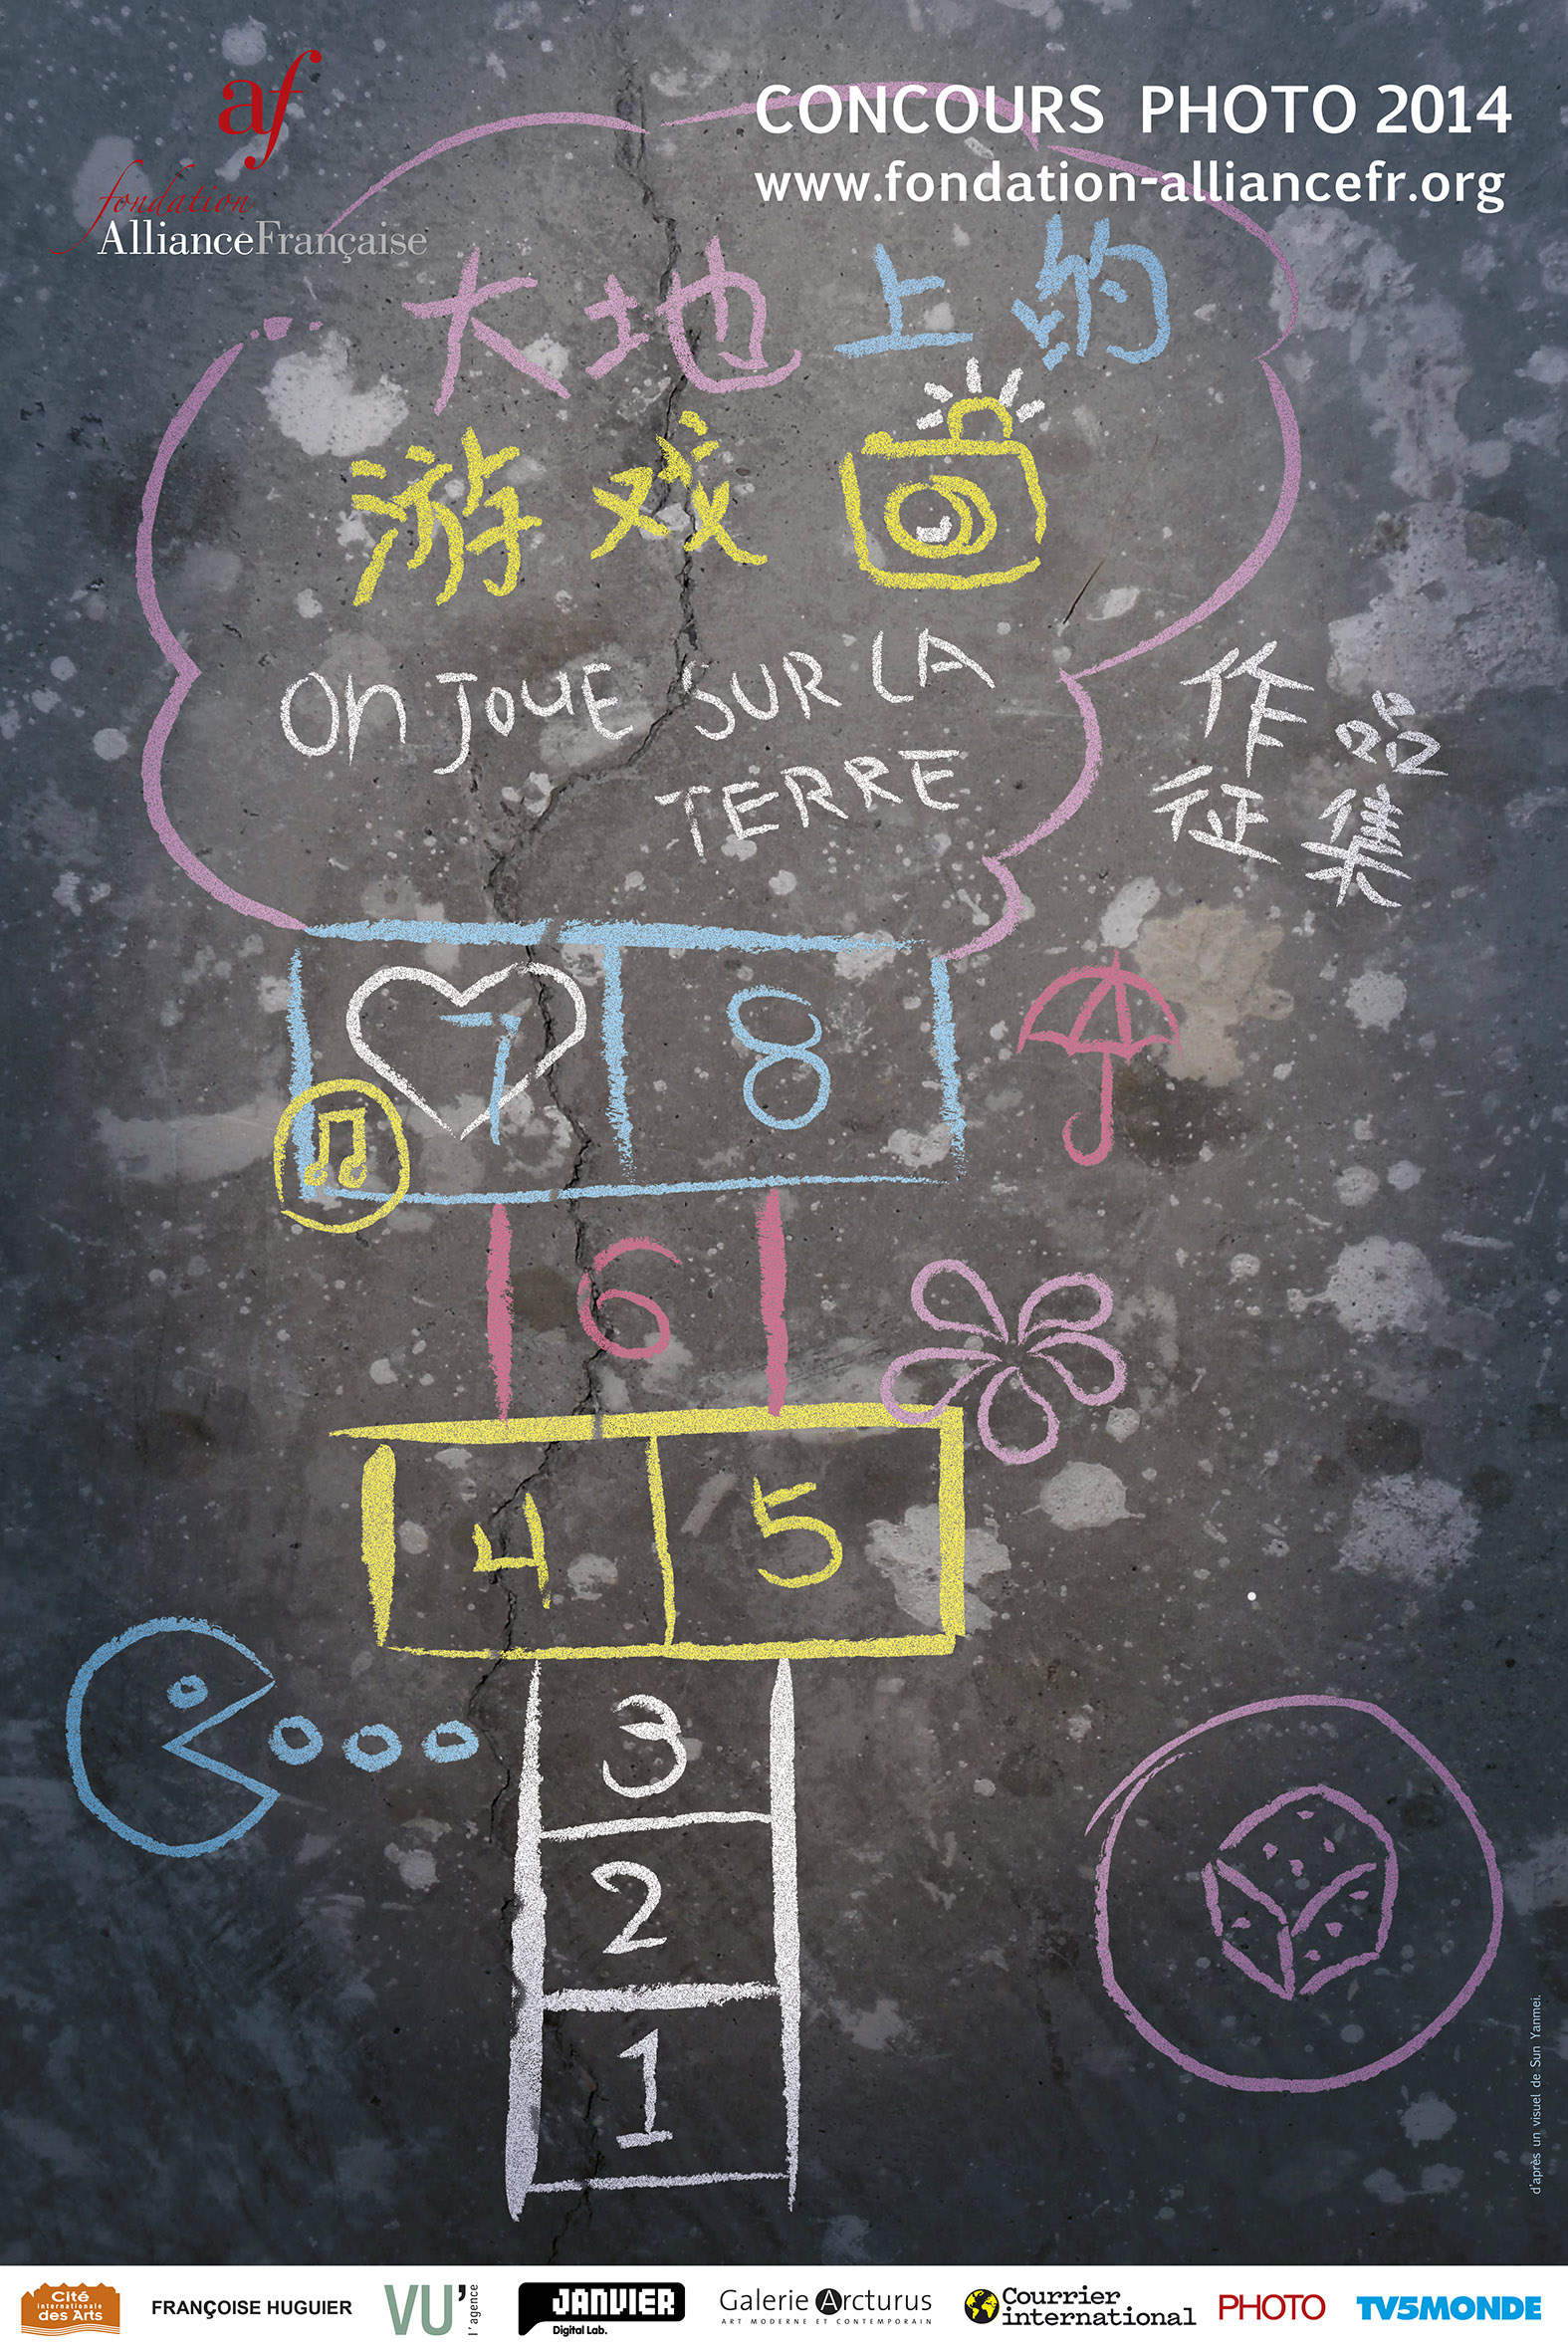 af
fondation
AllianceFrançaise
CONCOURS PHOTO 2014
www.fondation-alliancefr.org
大地上的
游戏
On JOUE SUR LA
TERRE
作品
征集
7 8
6
4 5
3
2
1
d'après un visuel de Sun Yanmei.
Cité
internationale
des Arts
FRANÇOISE HUGUIER
VU'
l'agence
JANVIER
Digital Lab.
Galerie Arcturus
ART MODERNE ET CONTEMPORAIN
Courrier
international
PHOTO
TV5MONDE